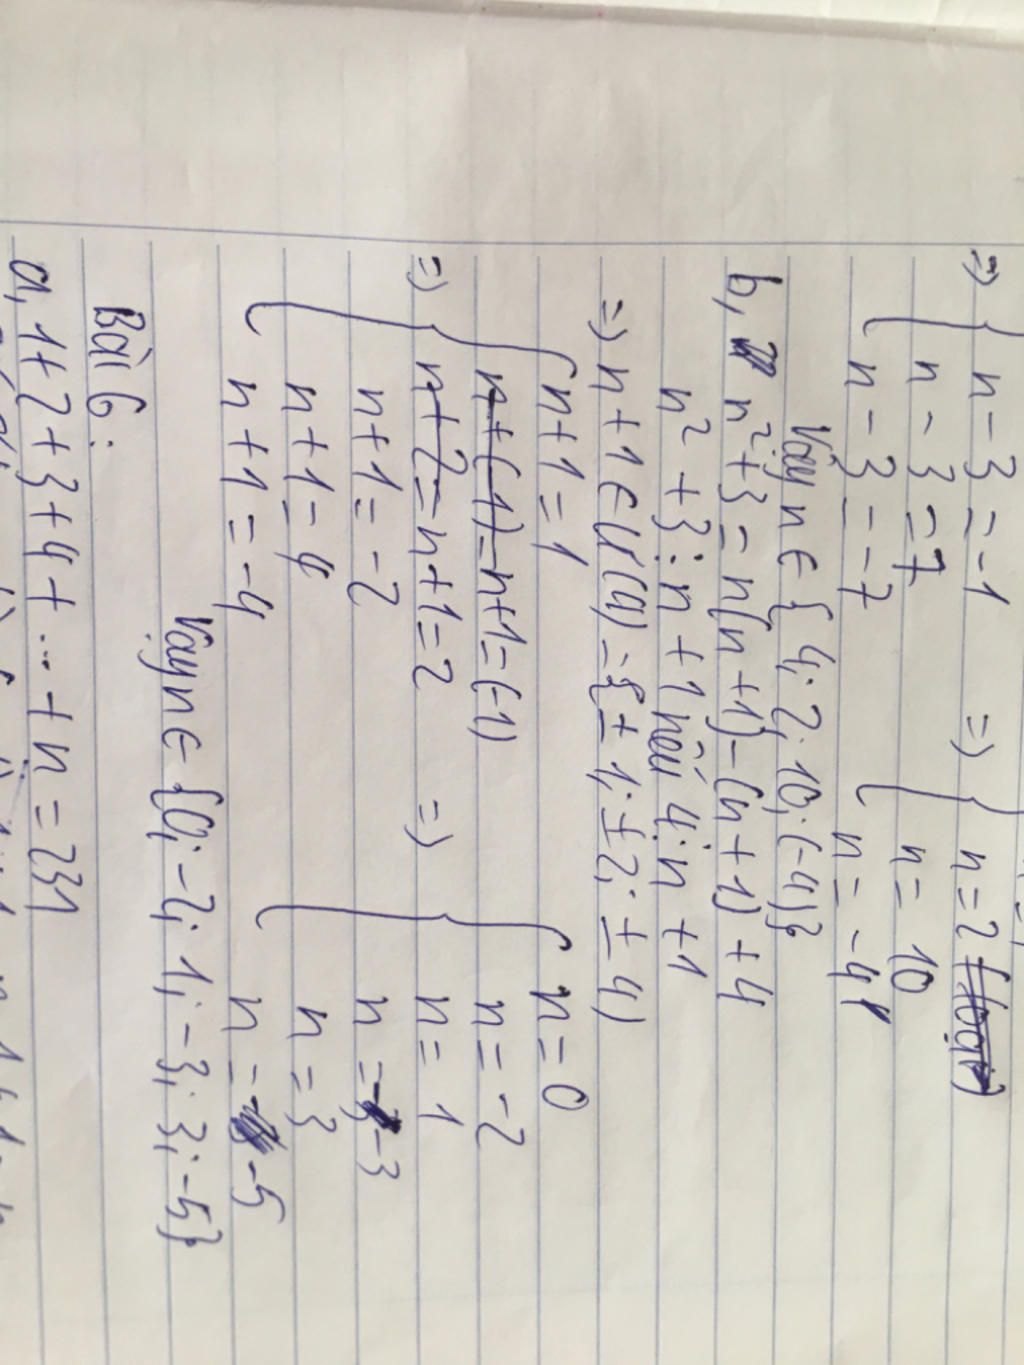 =) n - 3 = -1 =) n = 2
n - 3 = 7 n = 10
n - 3 = -7 n = -4
Vậy n ∈ { 4; 2; 10; (-4)}
b, n² + 3 = n(n + 1) - (n + 1) + 4
n² + 3 ⋮ n + 1 nếu 4 ⋮ n + 1
=) n + 1 ∈ Ư(4) = {± 1; ± 2; ± 4)
n + 1 = 1 n = 0
n + (-1) = n + 1 = (-1) n = -2
=) n + 2 = n + 1 = 2 =) n = 1
n + 1 = -2 n = -3
n + 1 = 4 n = 3
n + 1 = -4 n = -5
Vậy n ∈ {0; -2; 1; -3; 3; -5}
Bài 6:
a, 1 + 2 + 3 + 4 + ... + n = 231